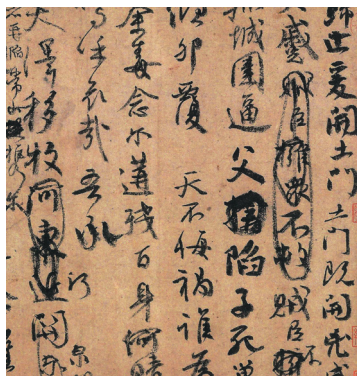 歸止爰開土門土門既開凶威
大蹙賊臣擁眾不救賊臣不
孤城圍逼父陷子死巢
傾卵覆天不悔禍誰為
荼毒念爾遘殘百身何贖
嗚乎哀哉吾承
天澤移牧河東近河關泉
再陷常山